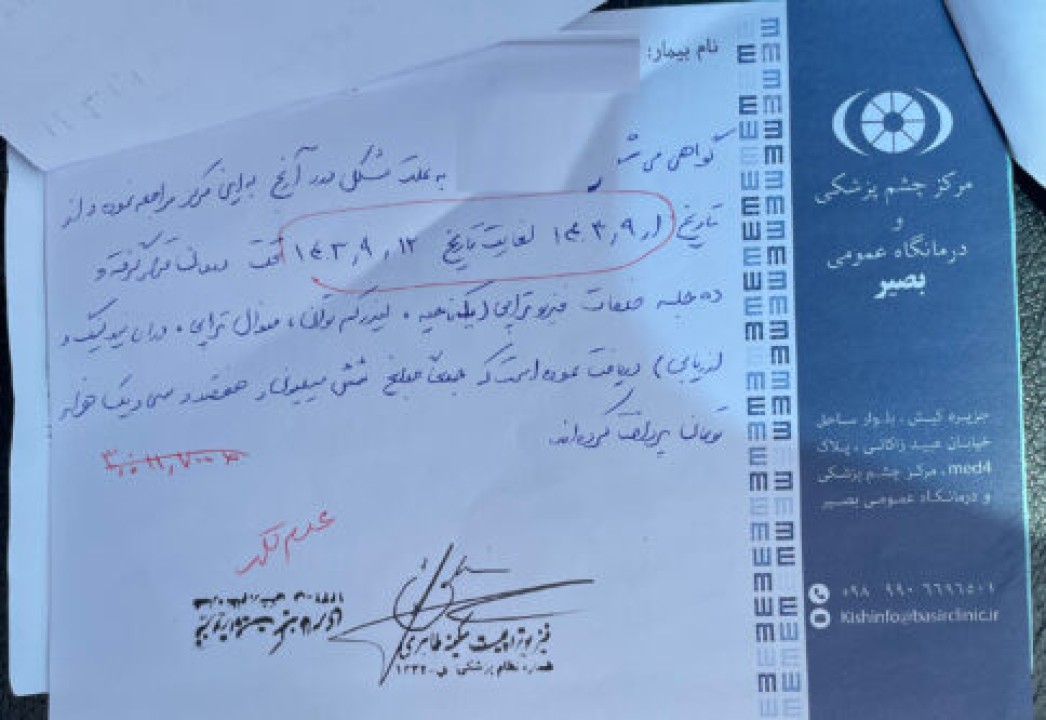 نام بیمار:
گواهی می شود
به علت مشکل در آرنج به این مرکز مراجعه نموده و از
تاریخ ۱۴۰۳٫۹٫۱ لغایت تاریخ ۱۴۰۳٫۹٫۱۲ تحت درمان قرار گرفته و
ده جلسه خدمات فیزیوتراپی (، لیزر کم توان، مدوال تراپی،
ارزیابی) دریافت نموده است که جمعاً مبلغ شش میلیون و هفتصد و سی و یک هزار
تومان پرداخت کرده اند.
عدم تکرر
فیزیوتراپیست سکینه طاهری
شماره نظام پزشکی ف-۱۳۲۲۰
مرکز چشم پزشکی
و
درمانگاه عمومی
بصیر
جزیره کیش ، بلوار ساحل
خیابان عبید زاکانی ، پلاک
med4 ، مرکز چشم پزشکی
و درمانگاه عمومی بصیر
۰۹۸ ۹۹۰ ۶۶۹۶۵۰۱
Kishinfo@basirclinic.ir